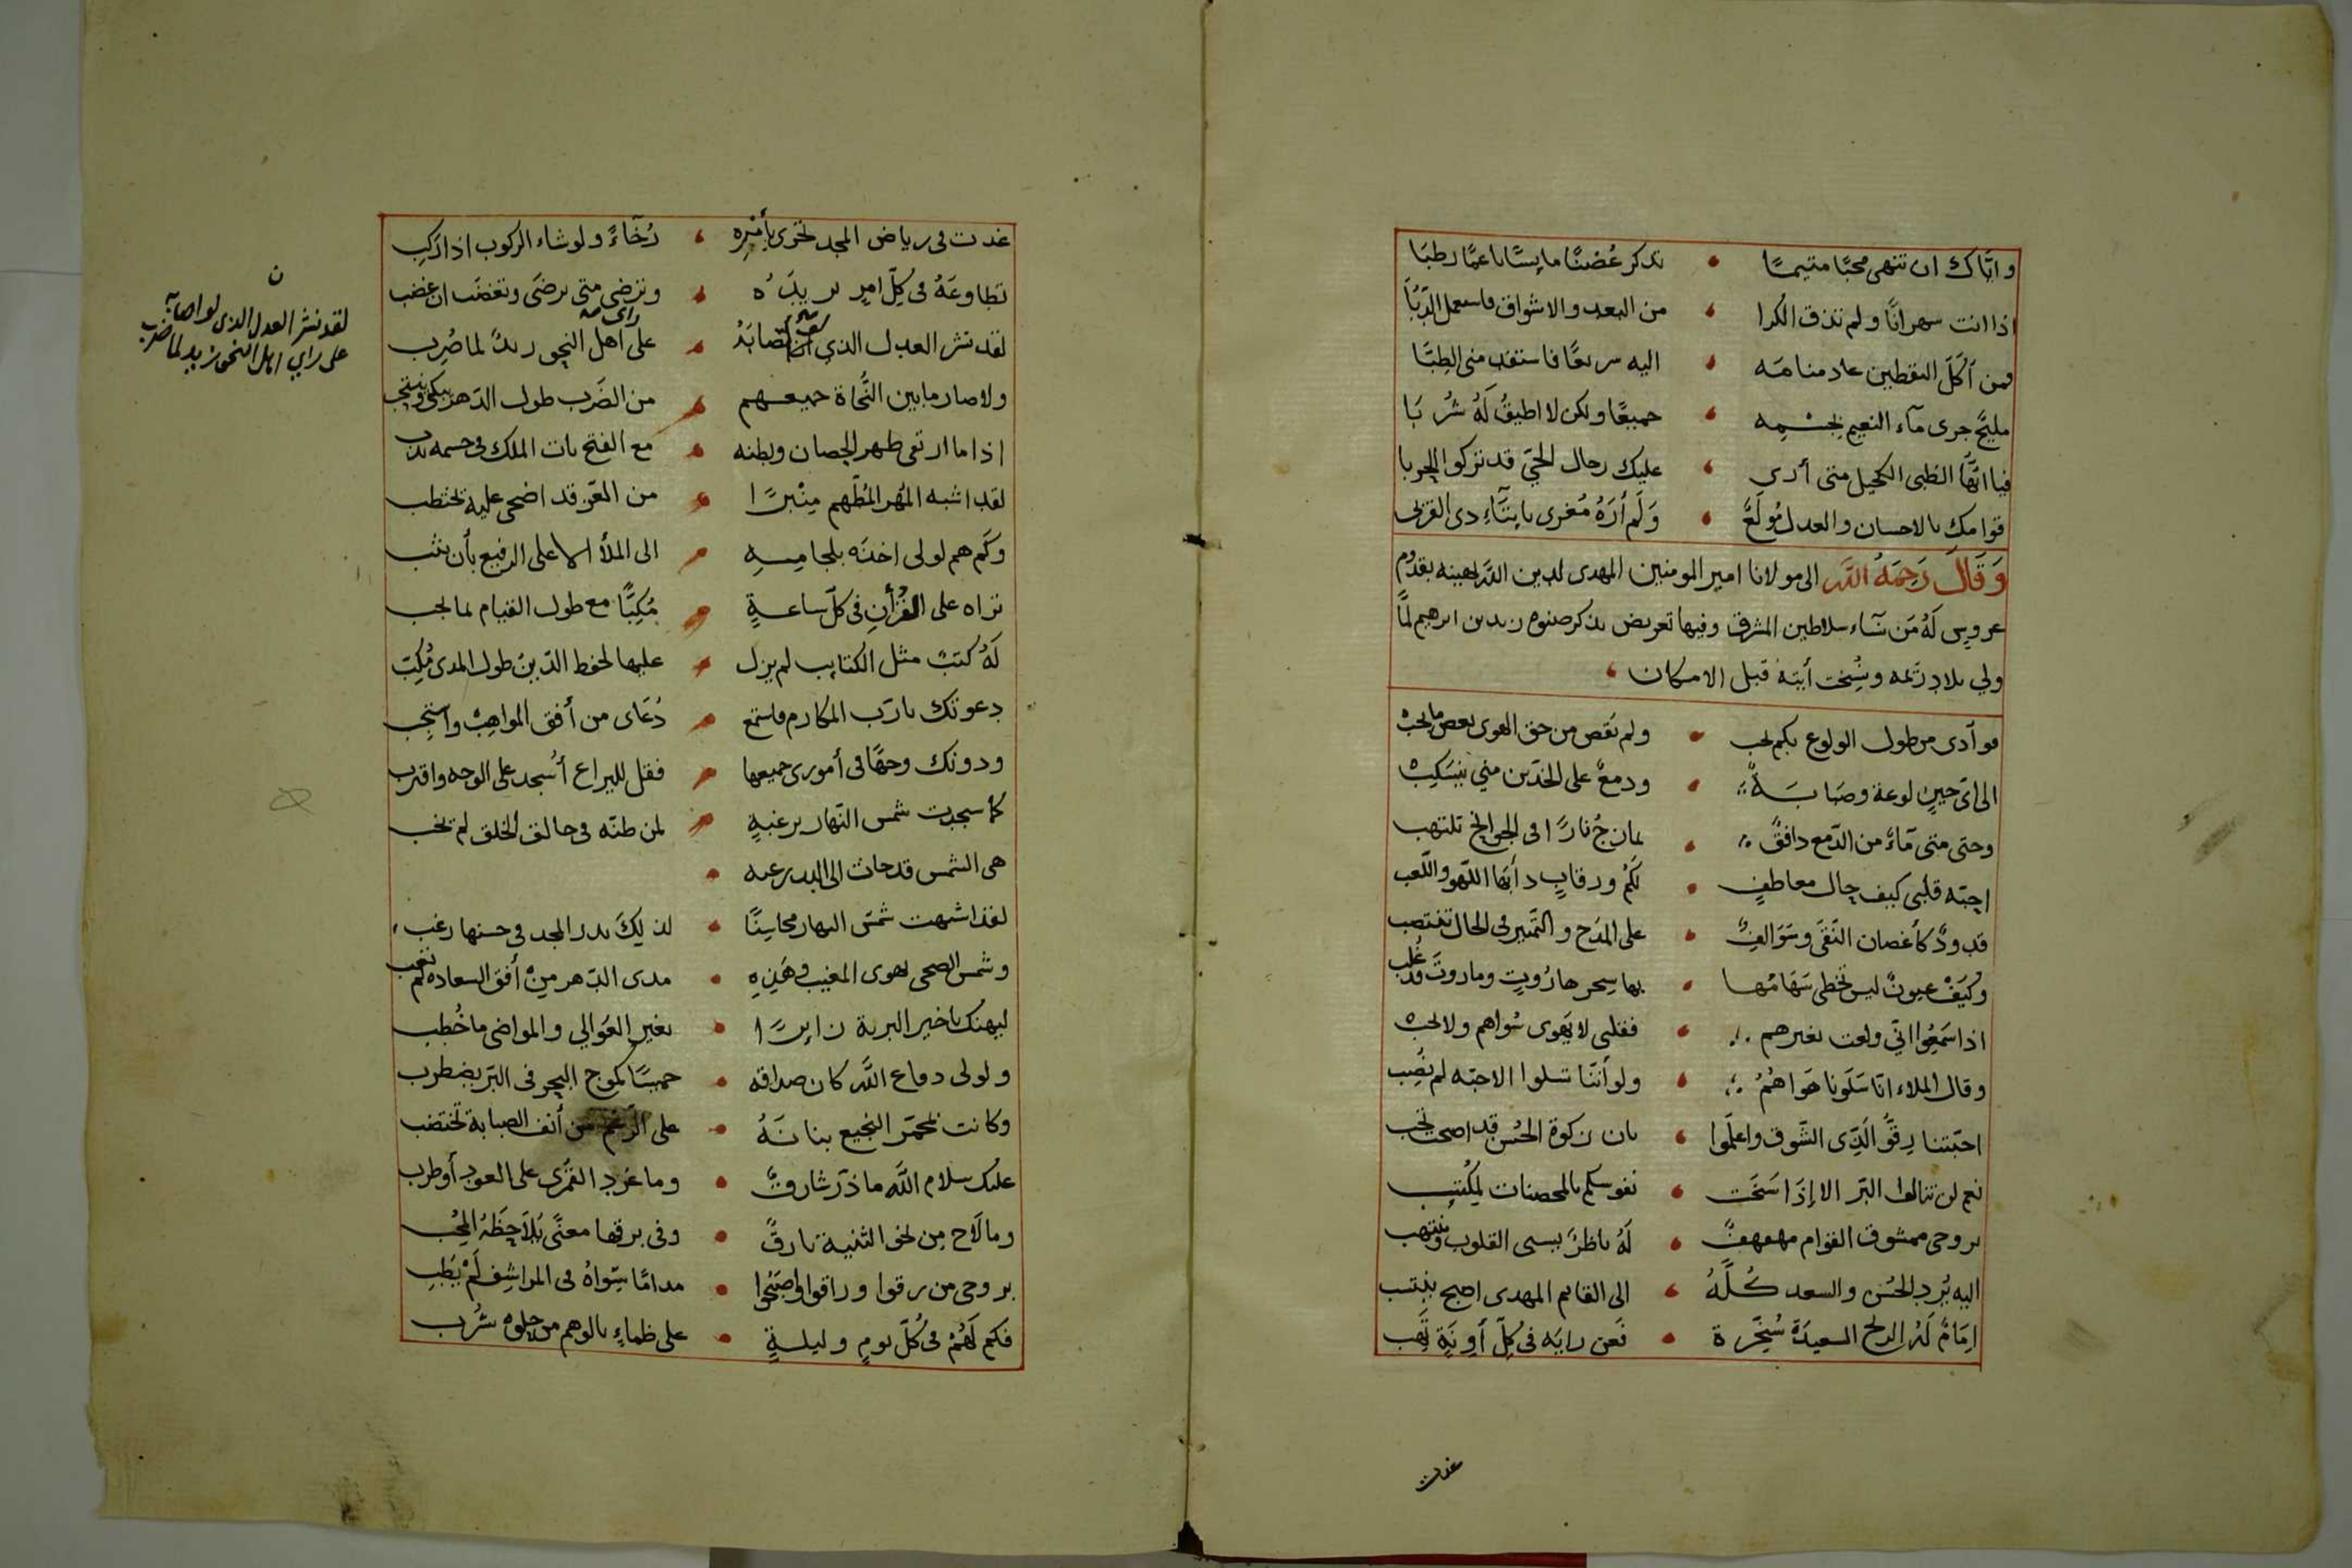 واياك ان تنهى محبًا متيمًا • تذكر غُصنًا مايسًا ناعمًا رطبَا
اذا انت سهرانًا ولم تذق الكرا • من البعد والاشواق فاسعمل الدّبَّا
فمن أكَلَ اليقطين عاد منامَه • اليه سريعًا فاستفد مني الطِبَّا
مليحٌ جرى مآء النعيم بجسْمِه • جميعًا ولكن لا اطيقُ لَهُ شُربَا
فيا ايّها الظبى الكحيل متى أرى • عليك رجال الحيّ قد تركوا الحربا
قوامك بالاحسان والعدل مُولَعٌ • وَلَم أرَهُ مُغرى بايتَآءِ ذى القربى
وَقَالَ رَحِمَهُ اللَّه الى مولانا امير المومنين المهدى لدين اللّه يهنيه بقدُوم
عروسٍ لَهُ من نسَآء سلاطين المشرق وفيها تعريض بذكر صنوه زيد بن ابرهيم لمَّا
ولي بلاد رَيمه ونُسِخت أيته قبل الامكان
فوآدى من طول الولوع بكم يجب • ولم نقص من حق الهوى بعض ما يجبْ
الى أى حينٍ لوعة وصَبابَةٌ • ودمعٌ على الخدّين مني ينسَكِبْ
وحتى متى مَآءٌ من الدّمع دافقٌ • يمازج نارًا فى الجوانح تلتهب
احِبّه قلبي كيف حال معاطفٍ • لكُم ورقابٍ دأبَها اللّهو واللّعب
قدودٌ كأغصان النّقَى وسَوَالفٌ • على المدَح والتّمييز فى الحال تنتصب
وكَيَفْ عيونٌ ليس تخطى سَهَامُها • بها سِحر هارُوتٍ وماروتَ قد غُلب
اذا سَمَعُوا انّي ولعت بغيرهم • فقلبي لا يَهوى سُواهم ولا يحبْ
وقال الملاء انّا سَلَونا هَوَاهُمُ • ولو أنّنا نسلوا الاحبّه لم نُصِب
احبّتنا رِقّوُ الَذِى الشّوق واعلَموا • بان زكوة الحُسن قد اصحت تجب
نعم لن تنالوا البّر الا إذَا سَخَت • نفوسكم بالمحصنات لمِكُتئِب
بروحى ممشوق القوام مهفهفٌ • لَهُ ناظرٌ يسبى القلوب وينتهب
اليه بُرد الحُسْن والسعد كُلّهُ • الى القايم المهدى اصبح ينتسب
اِمَامٌ لَهُ الريح السعيدَةُ سُخِّرة • فَعن رايَه فى كِلّ أوِنَةٍ تَهب
غدت
غدت فى رياض المجد تجرى بأمْرِه • رُخَآءً ولو شاء الركوب اذا ركِب
تطاوعَهُ فى كِلّ امرٍ يريدَهُ • وترضى متى يرضَى وتغضَب ان غضب
لقد نشر العدل الذي • على راي اهل النحو زيدٌ لما ضُرِب
ولا صار ما بين النُّحاة جميعهم • من الضَرب طول الدّهر يبكى وينتحب
اذا ما ارتقى ظهر الحصان وبطنه • مع الفتح بات الملك فى جسمه يدب
لقد اشبه المُهر المُطَهم مِنْبرًا • من العّز قد اضحى عليه يختطب
وكَم هم لولى اخذَه بلجامِهِ • الى الملأ الاعلى الرفيع بأن يثب
تراه على القرُأنِ فى كلّ ساعةٍ • مُكِبًّا مع طول القيام لما يجب
لَهُ كتبٌ مثل الكتايب لم يزل • عليها لحفظ الدّينْ طول المدى مُكِبّ
دعوتك يا رَب المكارم فاستمع • دُعَاى من أفق المواهِبْ واستجب
ودونك وجهًا فى أمورى جميعها • فقل لليراع أسجد على الوجه واقترب
كما سجدت شمس النّهار برغبةٍ • لمن ظنّه فى خالق الخلق لم يخب
هى الشمس قد جات الى البدر رغبه •
لقد اشبهت شمسَ النهار محاسِنًا • لذلِكَ بدر المجد فى حسنها رغب
وشمس الضحى يهوى المغيب وهَذِهِ • مدى الدّهر مِنْ أفق السعاده لم تغب
ليهنك يا خير البرية زايرًا • بغير العَوالي والمواضى ما خُطِب
ولولى دفاع اللّه كان صداقه • خميسًا كموج البحر فى البّر يضطرب
وكانت بمُحمّر النجيع بنانَهُ • على الرّغم من أنف الصبابة تختضب
عليك سلام اللَّه ما ذرّ شارقٌ • وما غرد القُمرى على العود أو طرب
وما لَاح مِن نحو الثنية بارقٌ • وفى برقها معنًى يُلَاحِظَهُ المُحِب
بروحى من رقوا وراقوا واصبَحُوا • مدامًا سِوَاهُ فى المراشِفِ لَمْ يَطِب
فكم لَهُمْ فى كُلّ يومٍ وليلةٍ • على ظماءٍ بالوهم من حلوه شُرب
ن
لقد نشر العدل الذى لو اصابَه
على راي اهل النحو زيد لما ضرب